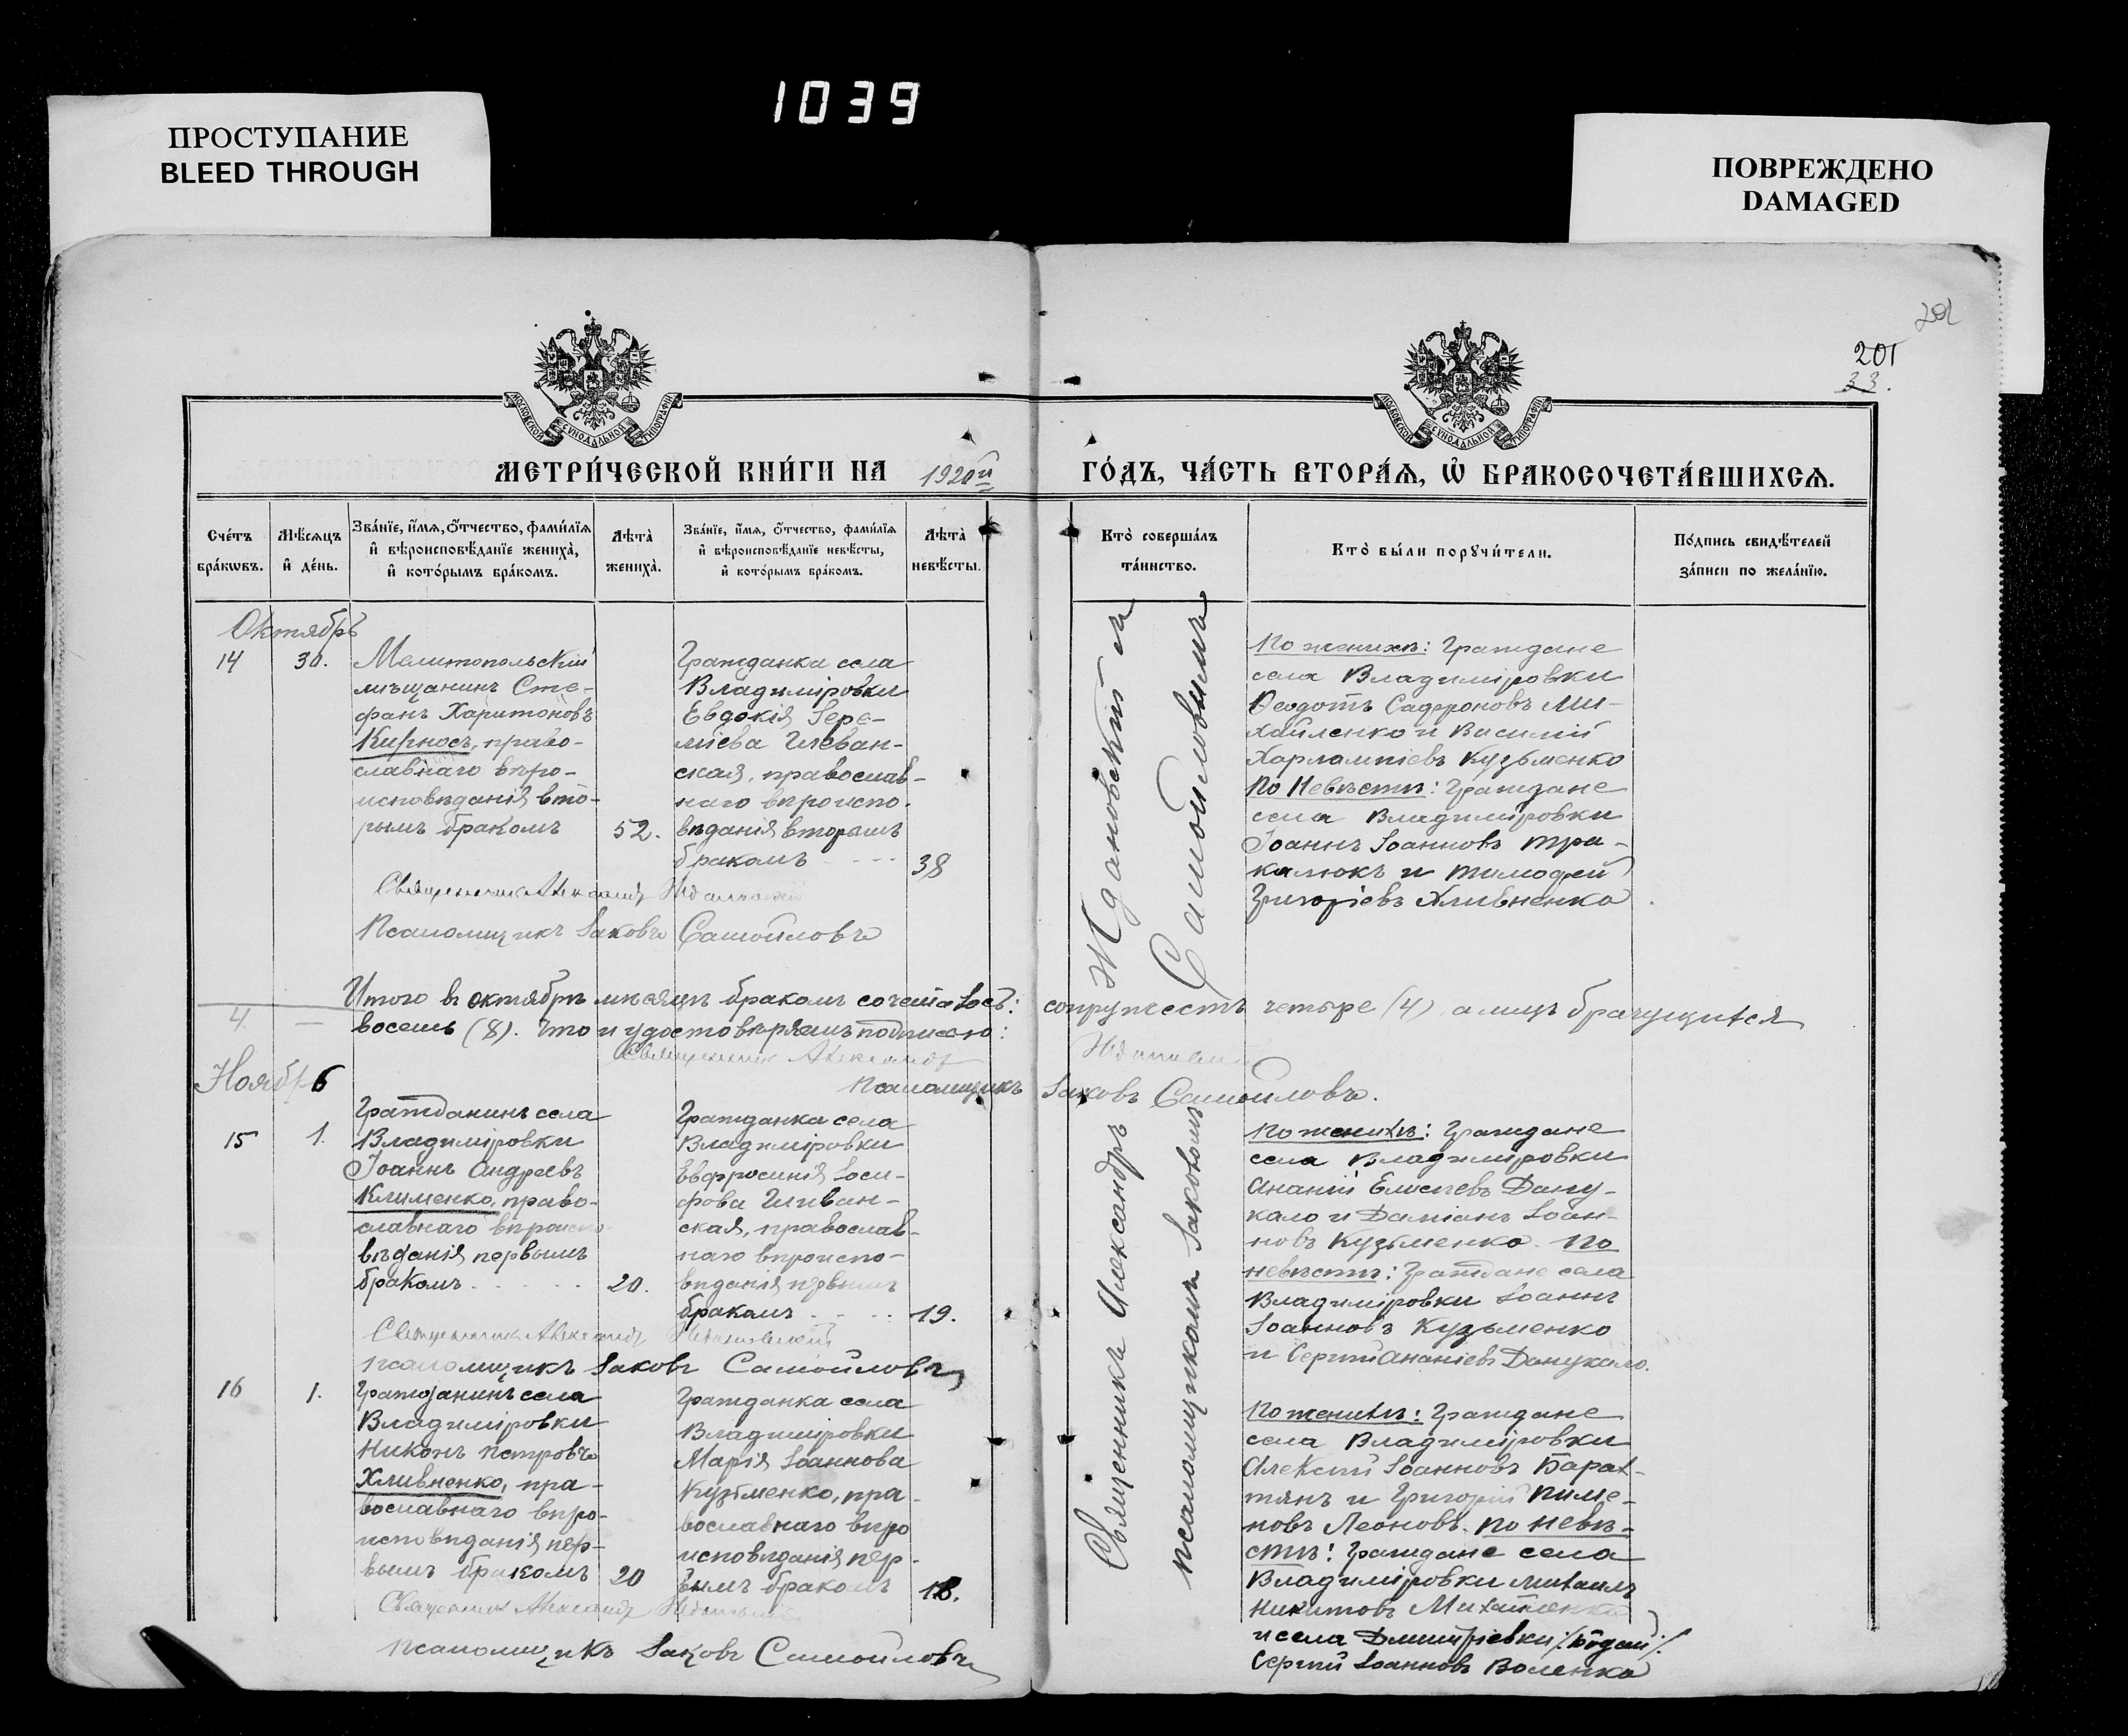 1039
ПРОСТУПАНИЕ
BLEED THROUGH
ПОВРЕЖДЕНО
DAMAGED
201
33.
МОСКОВСКОЙ СѴНОДАЛЬНОЙ ТИПОГРАФІИ
МОСКОВСКОЙ СѴНОДАЛЬНОЙ ТИПОГРАФІИ
МЕТРИ́ЧЕСКОЙ КНИ́ГИ НА 1920й ГО́ДЪ, ЧА́СТЬ ВТОРА́Я, Ѡ҆ БРАКОСОЧЕТА́ВШИХСЯ.
Сче́тъ бра́кѡвъ.
Мѣ́сяцъ и҆ де́нь.
Зва́нїе, и҆́мя, ѻ҆́тчество, фами́лїя
и҆ вѣроисповѣ́данїе жениха̀,
и҆ кото́рымъ бра́комъ.
Лѣ́та жениха̀.
Зва́нїе, и҆́мя, ѻ҆́тчество, фами́лїя
и҆ вѣроисповѣ́данїе невѣ́сты,
и҆ кото́рымъ бра́комъ.
Лѣ́та невѣ́сты.
Кто̀ соверша́лъ
та́инство.
Кто̀ бы́ли порꙋчи́тели.
По́дпись свидѣ́телей
за́писи по жела́нїю.
Октябрь
14
30.
Мелитопольскій
мѣщанинъ Сте-
фанъ Харитоновъ
Кирносъ, право-
славнаго вѣро-
исповѣданія вто-
рымъ бракомъ
52.
Гражданка села
Владиміровки
Евдокія Іере-
міева Шеван-
ская, православ-
наго вѣроиспо-
вѣданія вторымъ
бракомъ
38
По женихѣ: Граждане
села Владиміровки
Ѳеодотъ Сафроновъ Ми-
хайленко и Василій
Харлампіевъ Кузьменко
По Невѣстѣ: Граждане
села Владиміровки
Іоаннъ Іоанновъ Тра-
калюкъ и Тимофей
Григоріевъ Хливненко
Священникъ Александръ Ждановскій
Псаломщикъ Іаковъ Самойловъ
Итого въ октябрѣ мѣсяцѣ бракомъ сочеталось: супружествъ четыре (4) а лицъ брачущихся
4 —
восемь (8). Что и удостовѣряемъ подписью:
Священникъ Александръ Ждановскій
Псаломщикъ Іаковъ Самойловъ.
Ноябрь
15
1.
Гражданинъ села
Владиміровки
Іоаннъ Андреевъ
Клименко, право-
славнаго вѣроиспо-
вѣданія первымъ
бракомъ
20.
Гражданка села
Владиміровки
Евфросинія Іоси-
фова Шиван-
ская, православ-
наго вѣроиспо-
вѣданія первымъ
бракомъ
19.
По женихѣ: Граждане
села Владиміровки
Ананій Елисѣевъ Дану-
кало и Даміанъ Іоан-
новъ Кузьменко. По
невѣстѣ: Граждане села
Владиміровки Іоаннъ
Іоанновъ Кузьменко
и Сергій Ананіевъ Данукало.
Священникъ Александръ Ждановскій
псаломщикъ Іаковъ Самойловъ
16
1.
Гражданинъ села
Владиміровки
Никонъ Петровъ
Хливненко, пра-
вославнаго вѣро-
исповѣданія пер-
вымъ бракомъ
20
Гражданка села
Владиміровки
Марія Іоаннова
Кузьменко, пра-
вославнаго вѣро
исповѣданія пер-
вымъ бракомъ
18.
По женихѣ: Граждане
села Владиміровки
Алексій Іоанновъ Барах-
тянъ и Григорій Пиме-
новъ Леоновъ. По невѣ-
стѣ: Граждане села
Владиміровки Михаилъ
Никитовъ Михайленко
и села Дмитріевки
Сергій Іоанновъ Воленко
Священникъ Александръ Ждановскій
псаломщикъ Іаковъ Самойловъ
Священникъ Александръ Ждановскій съ
псаломщикомъ Іаковомъ Самойловымъ